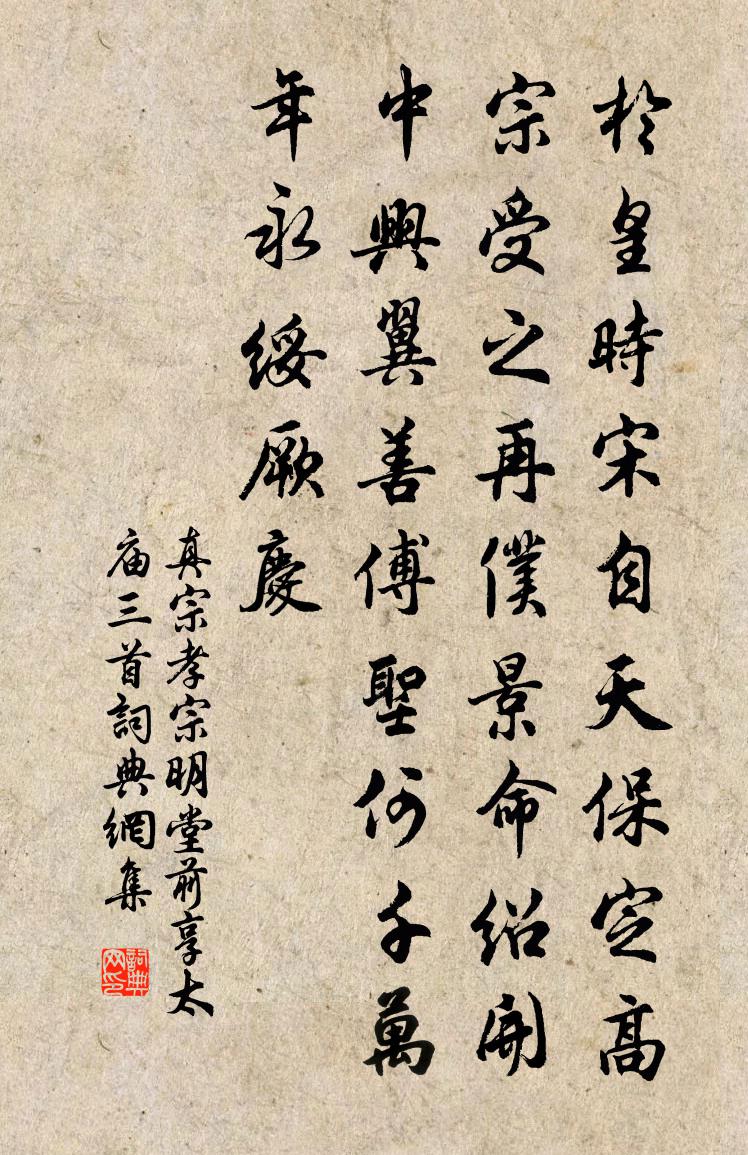 於皇時宋自天保定高
宗受之再僕景命紹開
中興翼善傅聖何千萬
年永綏厥慶
真宗孝宗明堂前享太
庙三首詞典網集
詞典网印